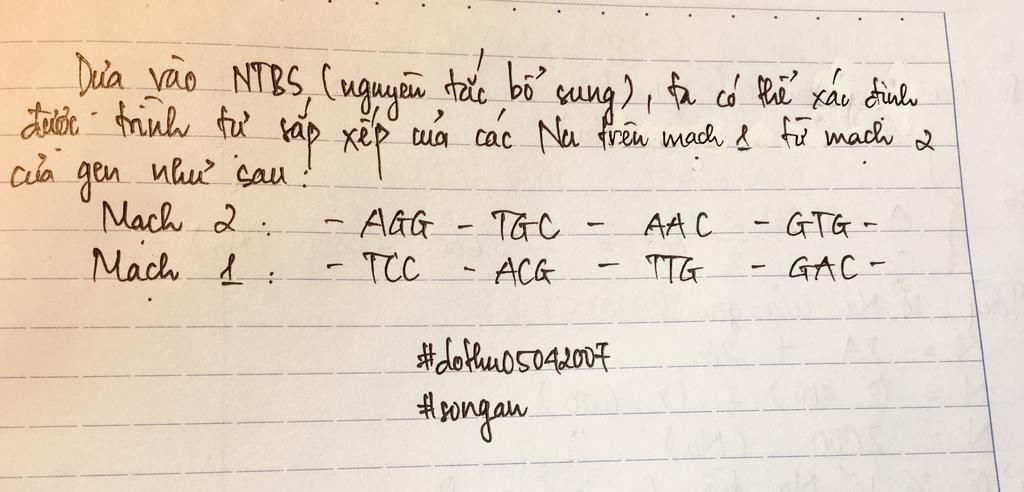 Dựa vào NTBS (nguyên tắc bổ sung), ta có thể xác định
được trình tự sắp xếp của các Nu trên mạch 1 từ mạch 2
của gen như sau:
Mạch 2: - AGG - TGC - AAC - GTG -
Mạch 1: - TCC - ACG - TTG - GAC -
#dothu05042007
#songan